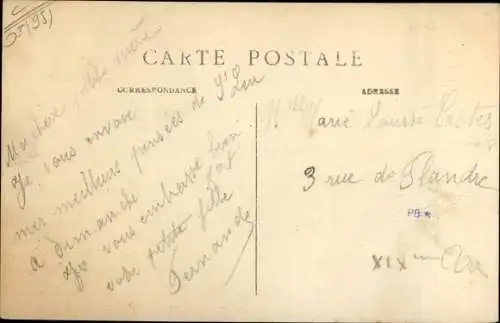 CARTE POSTALE
CORRESPONDANCE
Ma chère petite mère
Je vous envoie
mes meilleurs pensées de St Leu
à dimanche
Je vous embrasse bien fort
votre petite fille
Fernande
ADRESSE
Mlle Marie Louise
3 rue de Flandre
PB*
XIX